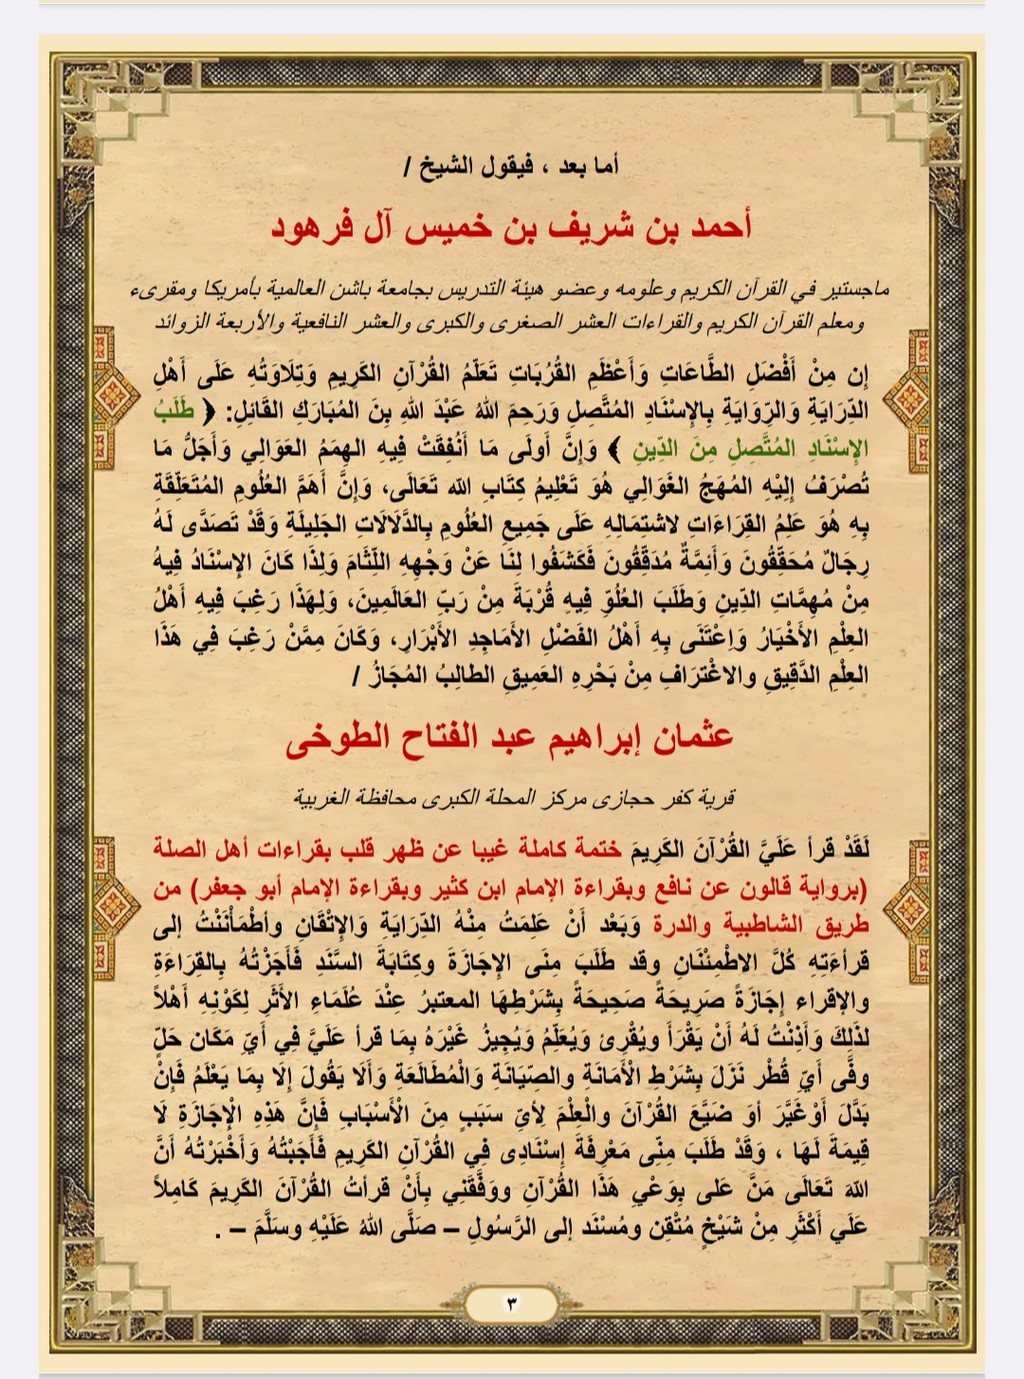 أما بعد ، فيقول الشيخ /
أحمد بن شريف بن خميس آل فرهود
ماجستير في القرآن الكريم وعلومه وعضو هيئة التدريس بجامعة باشن العالمية بأمريكا ومقرىء
ومعلم القرآن الكريم والقراءات العشر الصغرى والكبرى والعشر النافعية والأربعة الزوائد
إِن مِنْ أَفْضَلِ الطَّاعَاتِ وَأَعْظَمِ القُرُبَاتِ تَعَلّمُ القُرْآنِ الكَرِيمِ وَتِلَاوَتُهِ عَلَى أَهْلِ
الدِّرَايَةِ وَالرِّوَايَةِ بِالإِسْنَادِ المُتَّصِلِ وَرَحِمَ اللهُ عَبْدَ اللهِ بِنَ المُبَارَكِ القَائِلِ: ﴿ طَلَبُ
الإِسْنَادِ المُتَّصِلِ مِنَ الدِّينِ ﴾ وَإِنَّ أَولَى مَا أُنْفِقَتْ فِيهِ الهِمَمُ العَوَالِي وَأَجَلُّ مَا
تُصْرَفُ إِلَيْهِ المُهَجُ الغَوَالِي هُوَ تَعْلِيمُ كِتَابِ الله تَعَالَى، وَإِنَّ أَهَمَّ العُلُومِ المُتَعَلِّقَةِ
بِهِ هُوَ عَلِمُ القِرَاءَاتِ لاشتِمَالِهِ عَلَى جَمِيعِ العُلُومِ بِالدَّلَالَاتِ الجَلِيلَةِ وَقَدْ تَصَدَّى لَهُ
رِجَالٌ مُحَقِّقُونَ وَأَئِمَّةٌ مُدَقِّقُونَ فَكَشَفُوا لنَا عَنْ وَجْهِهِ اللِّثَامَ وَلِذَا كَانَ الإِسْنَادُ فِيهُ
مِنْ مُهِمَّاتِ الدِّينِ وَطَلَبَ العُلُوِّ فِيهِ قُرْبَةَ مِنْ رَبِّ العَالَمِينَ، وَلِهَذَا رَغِبَ فِيهِ أَهْلُ
العِلْمِ الأَخْيَارُ وَاِعْتَنَى بِهِ أَهْلُ الفَضْلِ الأَمَاجِدِ الأَبْرَارِ، وَكَانَ مِمَّنْ رَغِبَ فِي هَذَا
العِلْمِ الدَّقِيقِ والاغْتِرَافِ مِنْ بَحْرِهِ العَمِيقِ الطالِبُ المُجَازُ /
عثمان إبراهيم عبد الفتاح الطوخى
قرية كفر حجازى مركز المحلة الكبرى محافظة الغربية
لَقَدْ قرأ عَلَيَّ القُرْآنَ الكَرِيمَ ختمة كاملة غيبا عن ظهر قلب بقراءات أهل الصلة
(برواية قالون عن نافع وبقراءة الإمام ابن كثير وبقراءة الإمام أبو جعفر) من
طريق الشاطبية والدرة وَبَعْد أَنْ عَلِمَتُ مِنْهُ الدِّرَايَةِ وَالإِتْقَانِ وأطْمَأْنَنْتُ إلى
قرأءَتِهِ كُلَّ الاطْمِئْنَانِ وقد طَلَبَ مِنَى الإِجَازَةَ وكِتَابَةَ السَّنَدِ فَأَجَزْتُهُ بِالقِرَاءَةِ
والإقراء إِجَازَةً صَرِيحَةً صَحِيحَةً بِشَرْطِهَا المعتبرُ عِنْدَ عُلَمَاءِ الأَثَرِ لِكَوْنِهِ أَهْلاً
لذَلِكَ وَأَذِنْتُ لَهُ أَنْ يَقْرَأَ ويُقْرِئ وَيُعَلِّمُ وَيُجِيزُ غَيْرَهُ بِمَا قرأ عَلَيَّ فِي أَيِّ مَكَان حَلّ
وفَّى أَيِّ قُطْر نَزَلَ بِشَرْطِ الْأَمَانَةِ والصِّيَانَةِ وَالْمُطَالَعَةِ وَأَلَا يَقُولَ إِلَا بِمَا يَعْلَمُ فَإِنْ
بَدَّلَ أَوْغَيَّرَ أوَ ضَيَّعَ القُرْآنَ والْعِلْمَ لِأَيِّ سَبَبٍ مِنَ الْأَسْبَابِ فَإِنَّ هَذِهِ الْإِجَازَةِ لَا
قِيمَةَ لَهَا ، وَقَدْ طَلَبَ مِنِّى مَعْرِفَةَ إِسْنَادِى فِي القُرْآنِ الكَرِيمِ فَأَجَبْتُهُ وَأَخْبَرْتُهُ أَنَّ
اللهَ تَعَالَى مَنَّ عَلى بِوَعْيِ هَذَا القُرْآنِ ووَفَّقَنِي بِأَنْ قرأتُ القُرْآنَ الكَرِيمَ كَامِلاً
عَلَي أَكْثَرِ مِنْ شَيْخٍ مُتْقِن ومُسْنَد إلى الرَّسُولِ – صَلَّى اللهُ عَلَيْهِ وسَلَّمَ – .
٣